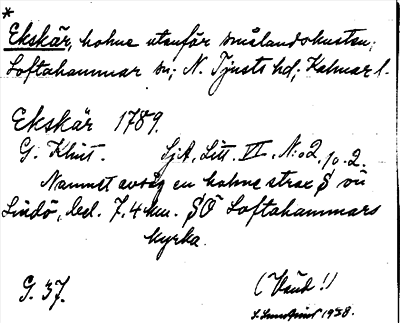 *
Ekskär, holme utanför smålandskusten,
Loftahammar sn; N. Tjusts hd; Kalmar l.
Ekskär 1789.
G. Klint. SjA, Litt. VI, N:o 2, 10. 2.
Namnet avsåg en holme strax S om
Lindö, bel. 7,4 km. SO Loftahammars
kyrka.
G. 37. (Vänd!)
1938.